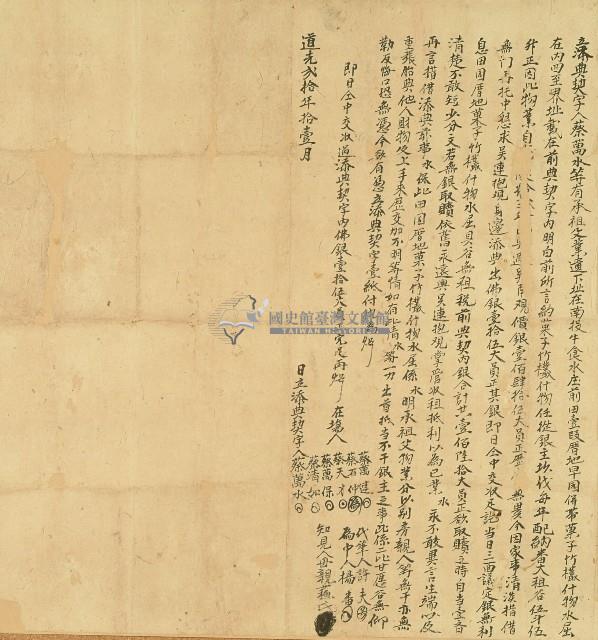 立添典契字人蔡萬水等有承祖父業遺下址在南技牛食水庄前田壹段厝地旱園併帶菓子竹欉什物水屈
在內四至界址載在前典契字內明白前所言約菓子竹欉什物任從銀主坎伐每年配納番大租谷伍斗伍
升正因此物業自 價銀壹佰肆拾伍大員正歷 無異今因家事清淡措借
無門再托中懇求吳連抱觀身邊添典出佛銀壹拾伍大員正其銀即日仝中交收足訖當日三面議定銀無利
息田園厝地菓子竹欉什物水屈貝谷無租稅前典契內銀合計共壹佰陸拾大員正欲取贖之時自當壹齊
清楚不敢短少分文若無銀取贖依舊永遠與吳連抱觀掌管收租抵利以為己業水永不敢異言生端以及
再言措借添典等事水保此田園厝地菓子竹欉什物水屈係水明承祖父物業分以別房親人等無干亦無
重張胎典他人財物及上手來歷交加不明等情如有此情水等一力出首抵當不干銀主之事此係二比甘愿各無抑
勒反悔口恐無憑今欲有憑立添典契字壹紙付執為炤
即日仝中交收過添典契字內佛銀壹拾伍大員完足再炤
在塲人
蔡萬進
蔡石仲
蔡天才
蔡萬保
蔡清如
代筆人許夫
為中人楊香
知見人母親蘇氏
道光貳拾年拾壹月 日立添典契字人蔡萬水
國史館臺灣文獻館
TAIWAN HISTORICA